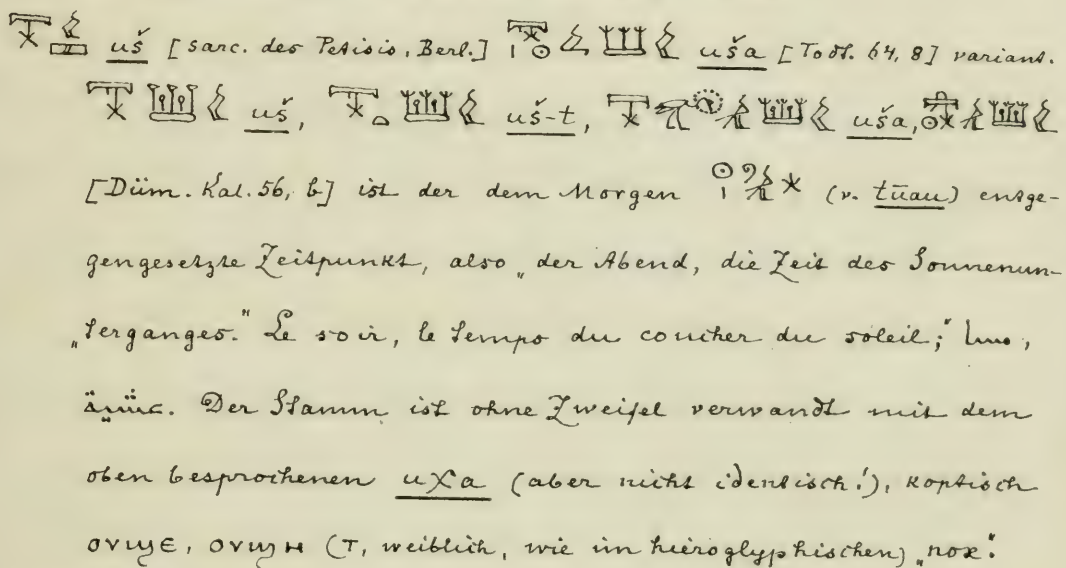 uš [sarc. des Petisis, Berl.] uša [Todt. 64, 8] variant.
uš, uš-t, uša,
[Düm. Kal. 56, b] ist der dem Morgen (v. tūau) entge-
gengesetzte Zeitpunkt, also „der Abend, die Zeit des Sonnenun-
„terganges." Le soir, le temps du coucher du soleil; مسا,
عشية. Der Stamm ist ohne Zweifel verwandt mit dem
oben besprochenen uχa (aber nicht identisch!), koptisch
ⲟⲩϣⲉ, ⲟⲩϣⲏ (ⲧ, weiblich, wie im hieroglyphischen) „nox".